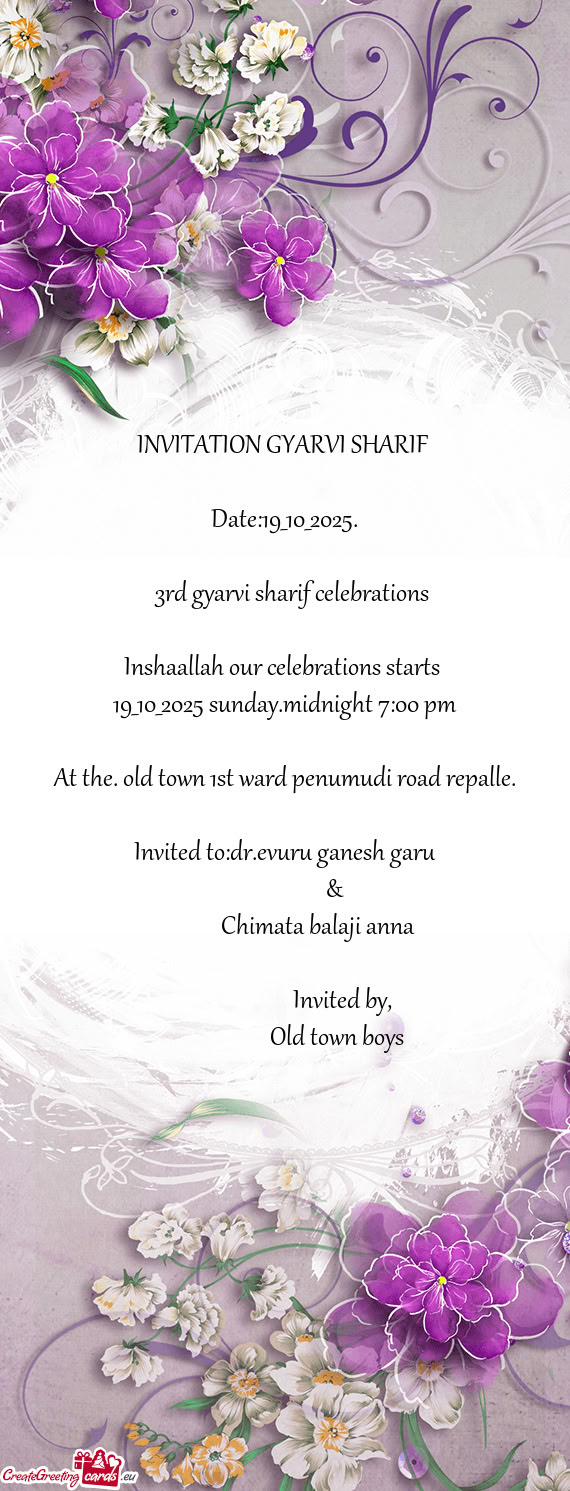 INVITATION GYARVI SHARIF
Date:19_10_2025.
3rd gyarvi sharif celebrations
Inshaallah our celebrations starts
19_10_2025 sunday.midnight 7:00 pm
At the. old town 1st ward penumudi road repalle.
Invited to:dr.evuru ganesh garu
&
Chimata balaji anna
Invited by,
Old town boys
CreateGreeting cards .eu